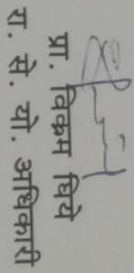 प्रा. विक्रम घिये
रा. से. यो. अधिकारी